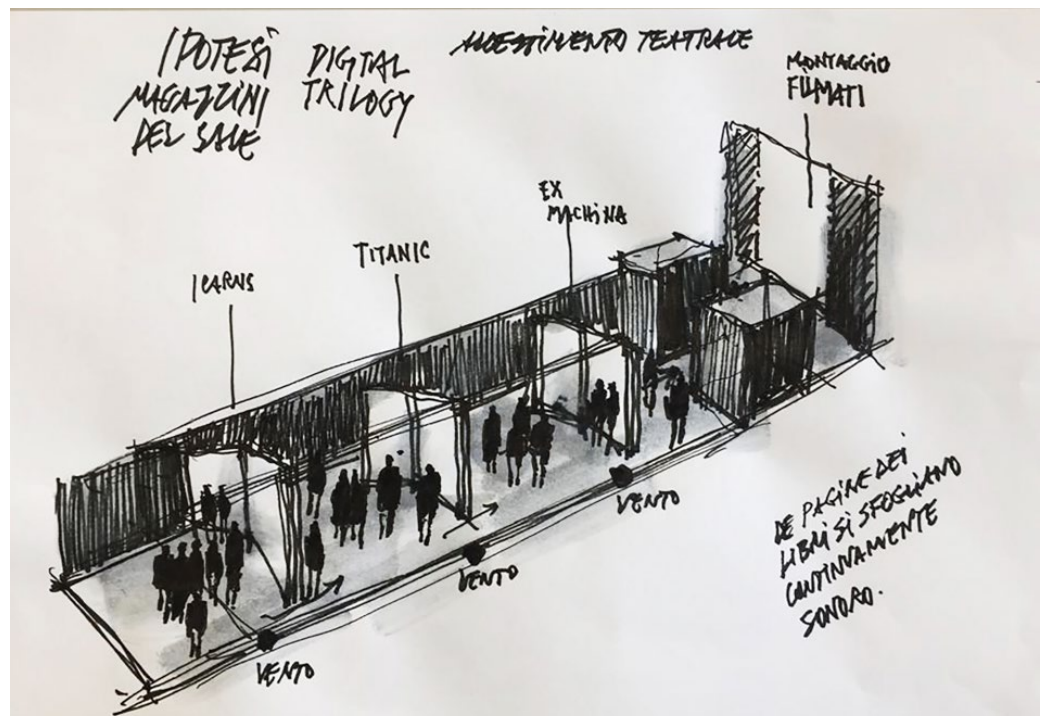 IPOTESI
MAGAZZINI
DEL SALE
DIGITAL
TRILOGY
ALLESTIMENTO TEATRALE
MONTAGGIO
FILMATI
EX
MACHINA
TITANIC
ICARUS
VENTO
VENTO
VENTO
LE PAGINE DEI
LIBRI SI SFOGLIANO
CONTINUAMENTE
SONORO.